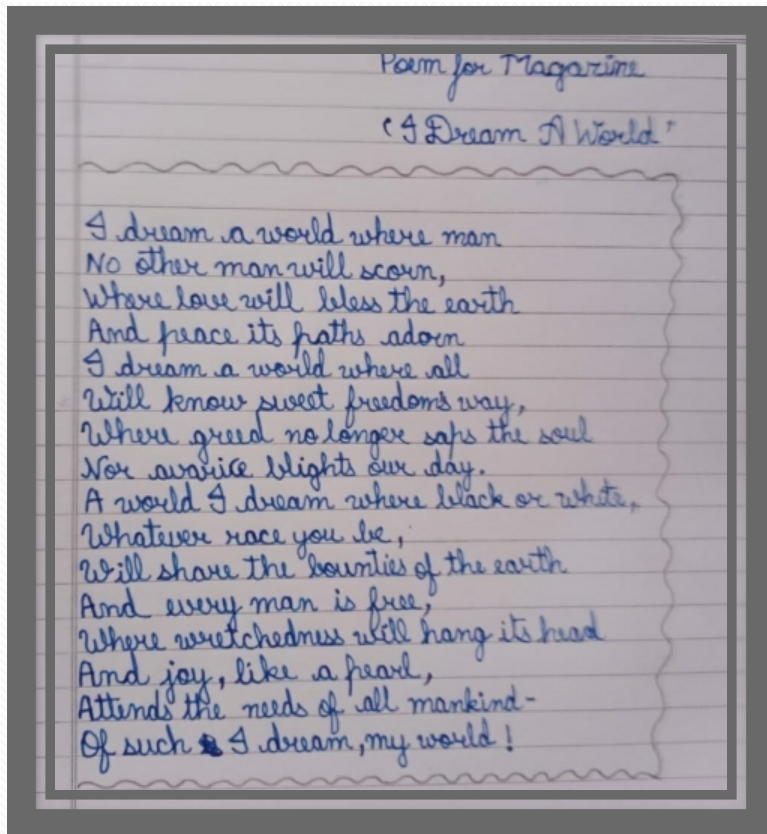 Poem for Magazine
"I Dream A World"
I dream a world where man
No other man will scorn,
Where love will bless the earth
And peace its paths adorn
I dream a world where all
Will know sweet freedoms way,
Where greed no longer saps the soul
Nor avarice blights our day.
A world I dream where black or white,
Whatever race you be,
Will share the bounties of the earth
And every man is free,
Where wretchedness will hang its head
And joy, like a pearl,
Attends the needs of all mankind-
Of such I dream, my world!